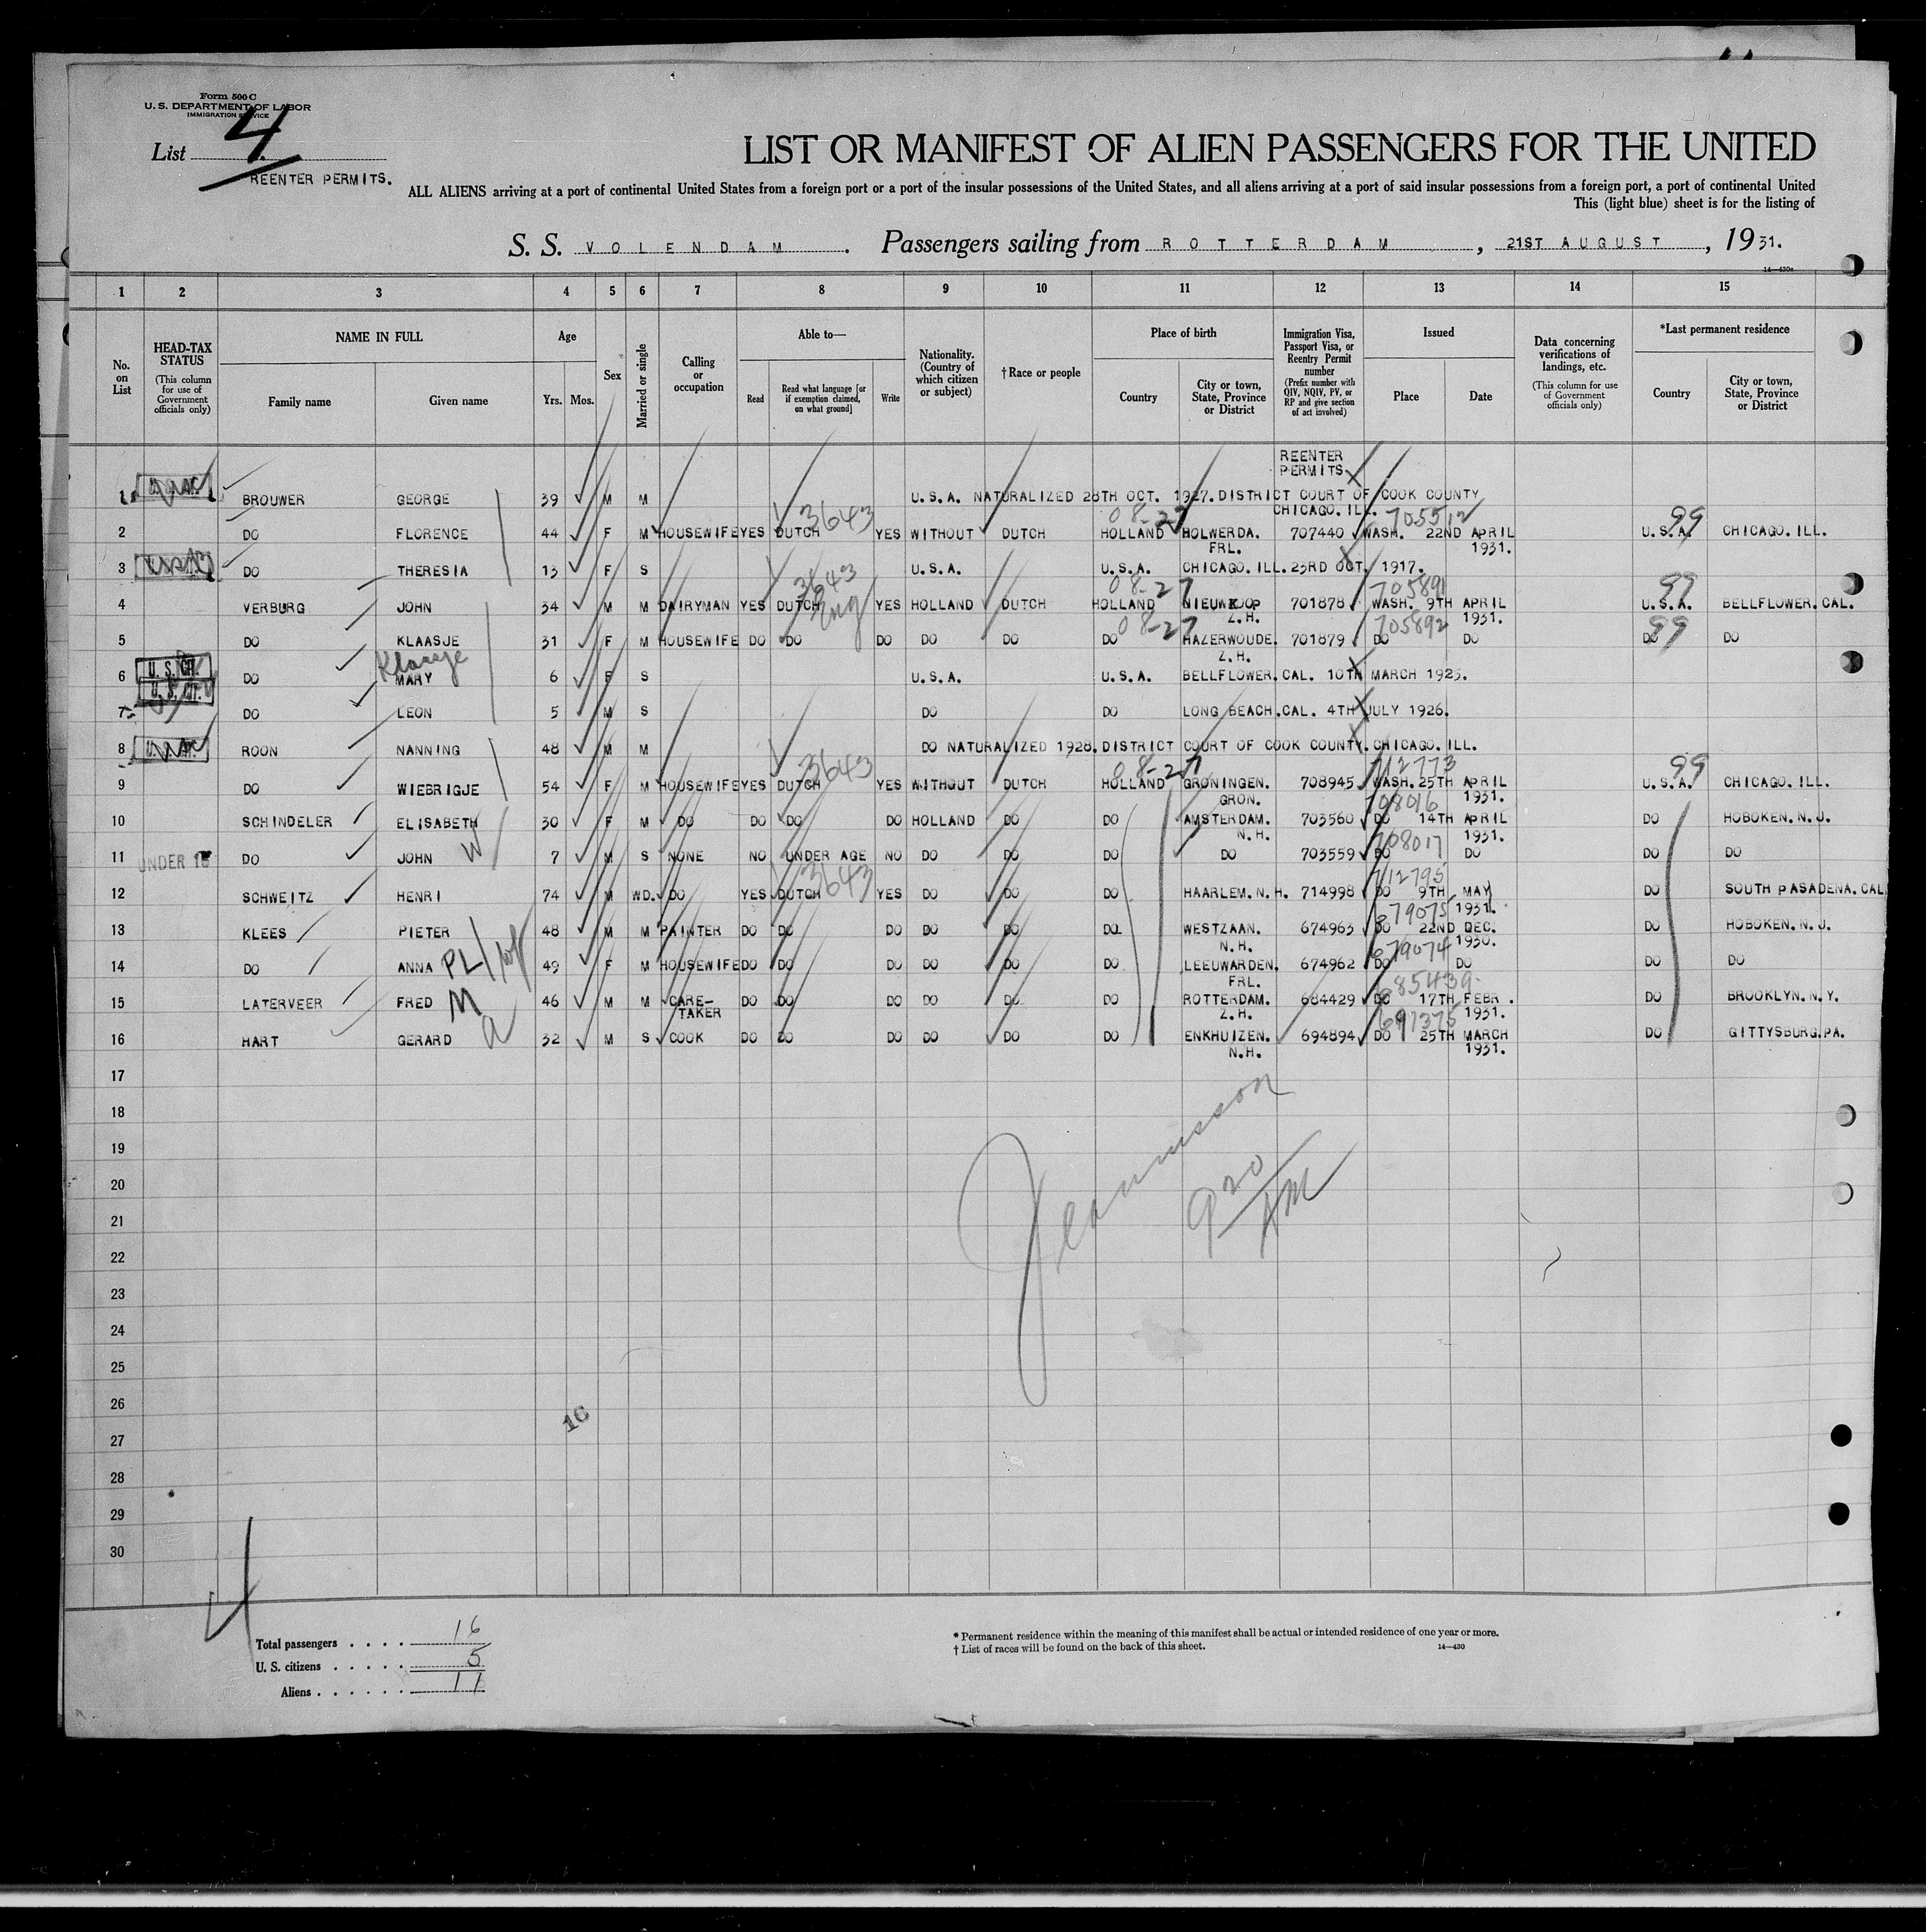 Form 500 C
U. S. DEPARTMENT OF LABOR
IMMIGRATION SERVICE
List 4
REENTER PERMITS.
LIST OR MANIFEST OF ALIEN PASSENGERS FOR THE UNITED
ALL ALIENS arriving at a port of continental United States from a foreign port or a port of the insular possessions of the United States, and all aliens arriving at a port of said insular possessions from a foreign port, a port of continental United
This (light blue) sheet is for the listing of
S. S. VOLENDAM. Passengers sailing from ROTTERDAM, 21ST AUGUST, 1931.
14—430c
1 2 3 4 5 6 7 8 9 10 11 12 13 14 15
No. on List
HEAD-TAX STATUS (This column for use of Government officials only)
NAME IN FULL
Family name Given name
Age
Yrs. Mos.
Sex
Married or single
Calling or occupation
Able to—
Read Read what language [or if exemption claimed, on what ground] Write
Nationality. (Country of which citizen or subject)
†Race or people
Place of birth
Country City or town, State, Province or District
Immigration Visa, Passport Visa, or Reentry Permit number (Prefix number with QIV, NQIV, PV, or RP and give section of act involved)
Issued
Place Date
Data concerning verifications of landings, etc. (This column for use of Government officials only)
*Last permanent residence
Country City or town, State, Province or District
REENTER
PERMITS.
1 BROUWER GEORGE 39 M M U.S.A. NATURALIZED 28TH OCT. 1927. DISTRICT COURT OF COOK COUNTY
CHICAGO. ILL. 705512
3643 08-27 99
2 DO FLORENCE 44 F M HOUSEWIFE YES DUTCH YES WITHOUT DUTCH HOLLAND HOLWERDA. 707440 WASH. 22ND APRIL U.S.A. CHICAGO. ILL.
FRL. 1931.
3 DO THERESIA 13 F S U.S.A. U.S.A. CHICAGO. ILL. 23RD OCT. 1917.
3643 08-27 705891 99
4 VERBURG JOHN 34 M M DAIRYMAN YES DUTCH Eng YES HOLLAND DUTCH HOLLAND NIEUWKOOP 701878 WASH. 9TH APRIL U.S.A. BELLFLOWER. CAL.
Z.H. 1931.
08-27 705892 99
5 DO KLAASJE 31 F M HOUSEWIFE DO DO DO DO DO DO HAZERWOUDE. 701879 DO DO DO DO
Z.H.
Klaasje
U. S. CIT.
6 DO MARY 6 F S U.S.A. U.S.A. BELLFLOWER. CAL. 10TH MARCH 1925.
U. S. CIT.
7 DO LEON 5 M S DO DO LONG BEACH. CAL. 4TH JULY 1926.
8 ROON NANNING 48 M M DO NATURALIZED 1928. DISTRICT COURT OF COOK COUNTY. CHICAGO. ILL.
3643 08-27 712773 99
9 DO WIEBRIGJE 54 F M HOUSEWIFE YES DUTCH YES WITHOUT DUTCH HOLLAND GRONINGEN. 708945 WASH. 25TH APRIL U.S.A. CHICAGO. ILL.
GRON. 1931.
708016
10 SCHINDELER ELISABETH 30 F M DO DO DO DO HOLLAND DO DO AMSTERDAM. 703560 DO 14TH APRIL DO HOBOKEN. N.J.
N.H. 1931.
708017
11 UNDER 16 DO JOHN W 7 M S NONE NO UNDER AGE NO DO DO DO DO 703559 DO DO DO DO
3643 712795
12 SCHWEITZ HENRI 74 M WD. DO YES DUTCH YES DO DO DO HAARLEM. N.H. 714998 DO 9TH MAY DO SOUTH PASADENA. CAL
1931.
679075
13 KLEES PIETER 48 M M PAINTER DO DO DO DO DO DO WESTZAAN. 674963 DO 22ND DEC. DO HOBOKEN. N.J.
N.H. 1930.
679074
14 DO ANNA 49 F M HOUSEWIFE DO DO DO DO DO DO LEEUWARDEN. 674962 DO DO DO DO
FRL.
685439
15 LATERVEER FRED M 46 M M CARE- DO DO DO DO DO DO ROTTERDAM. 684429 DO 17TH FEBR. DO BROOKLYN. N.Y.
TAKER Z.H. 1931.
697375
16 HART GERARD a 32 M S COOK DO DO DO DO DO DO ENKHUIZEN. 694894 DO 25TH MARCH DO GITTYSBURG. PA.
N.H. 1931.
17
18
19
20
920 AM
21
22
23
24
25
26
16
27
28
29
30
Total passengers . . . . 16
U. S. citizens . . . . . 5
Aliens . . . . . . 11
* Permanent residence within the meaning of this manifest shall be actual or intended residence of one year or more.
† List of races will be found on the back of this sheet.
14—430